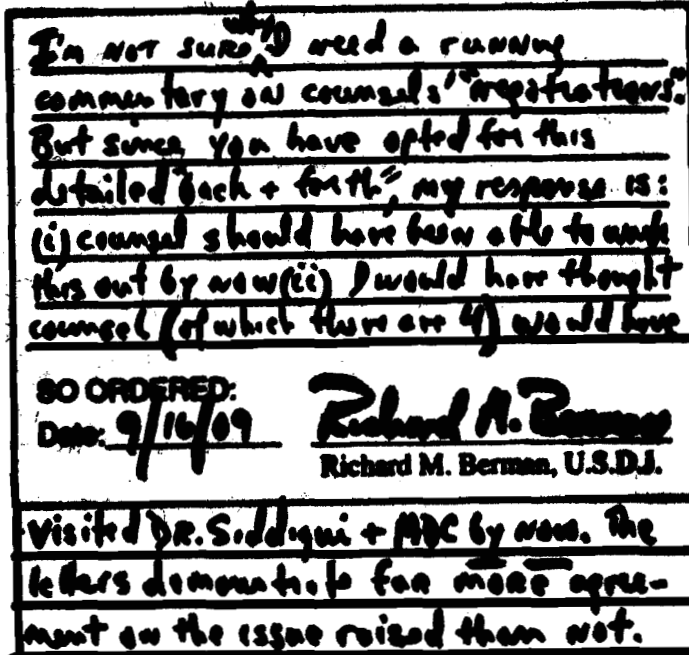 I'm not sure why I need a running
commentary on counsels' "negotiations."
But since you have opted for this
detailed "back + forth", my response is:
(i) counsel should have been able to work
this out by now (ii) I would have thought
counsel (of which there are 4) would have
SO ORDERED:
Date: 9/16/09 Richard M. Berman
Richard M. Berman, U.S.D.J.
visited Dr. Siddiqui + MDC by now. The
letters demonstrate far more agree-
ment on the issue raised than not.